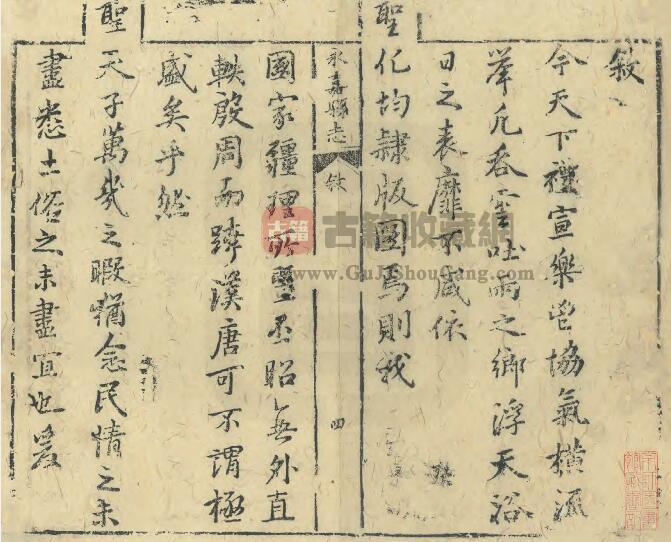 敘
今天下禮宣樂鬯協氣橫流
舉凡吞雲吐雨之鄉浮天浴
日之表靡不咸依
聖化均隸版圖焉則我
永嘉縣志 敘 四
國家疆理所曁丕昭無外直
軼殷周而躋漢唐可不謂極
盛矣乎然
聖天子萬幾之暇猶念民情之未
盡悉土俗之未盡宜也爰
古籍 古籍收藏網
www.GuJiShouCang.com